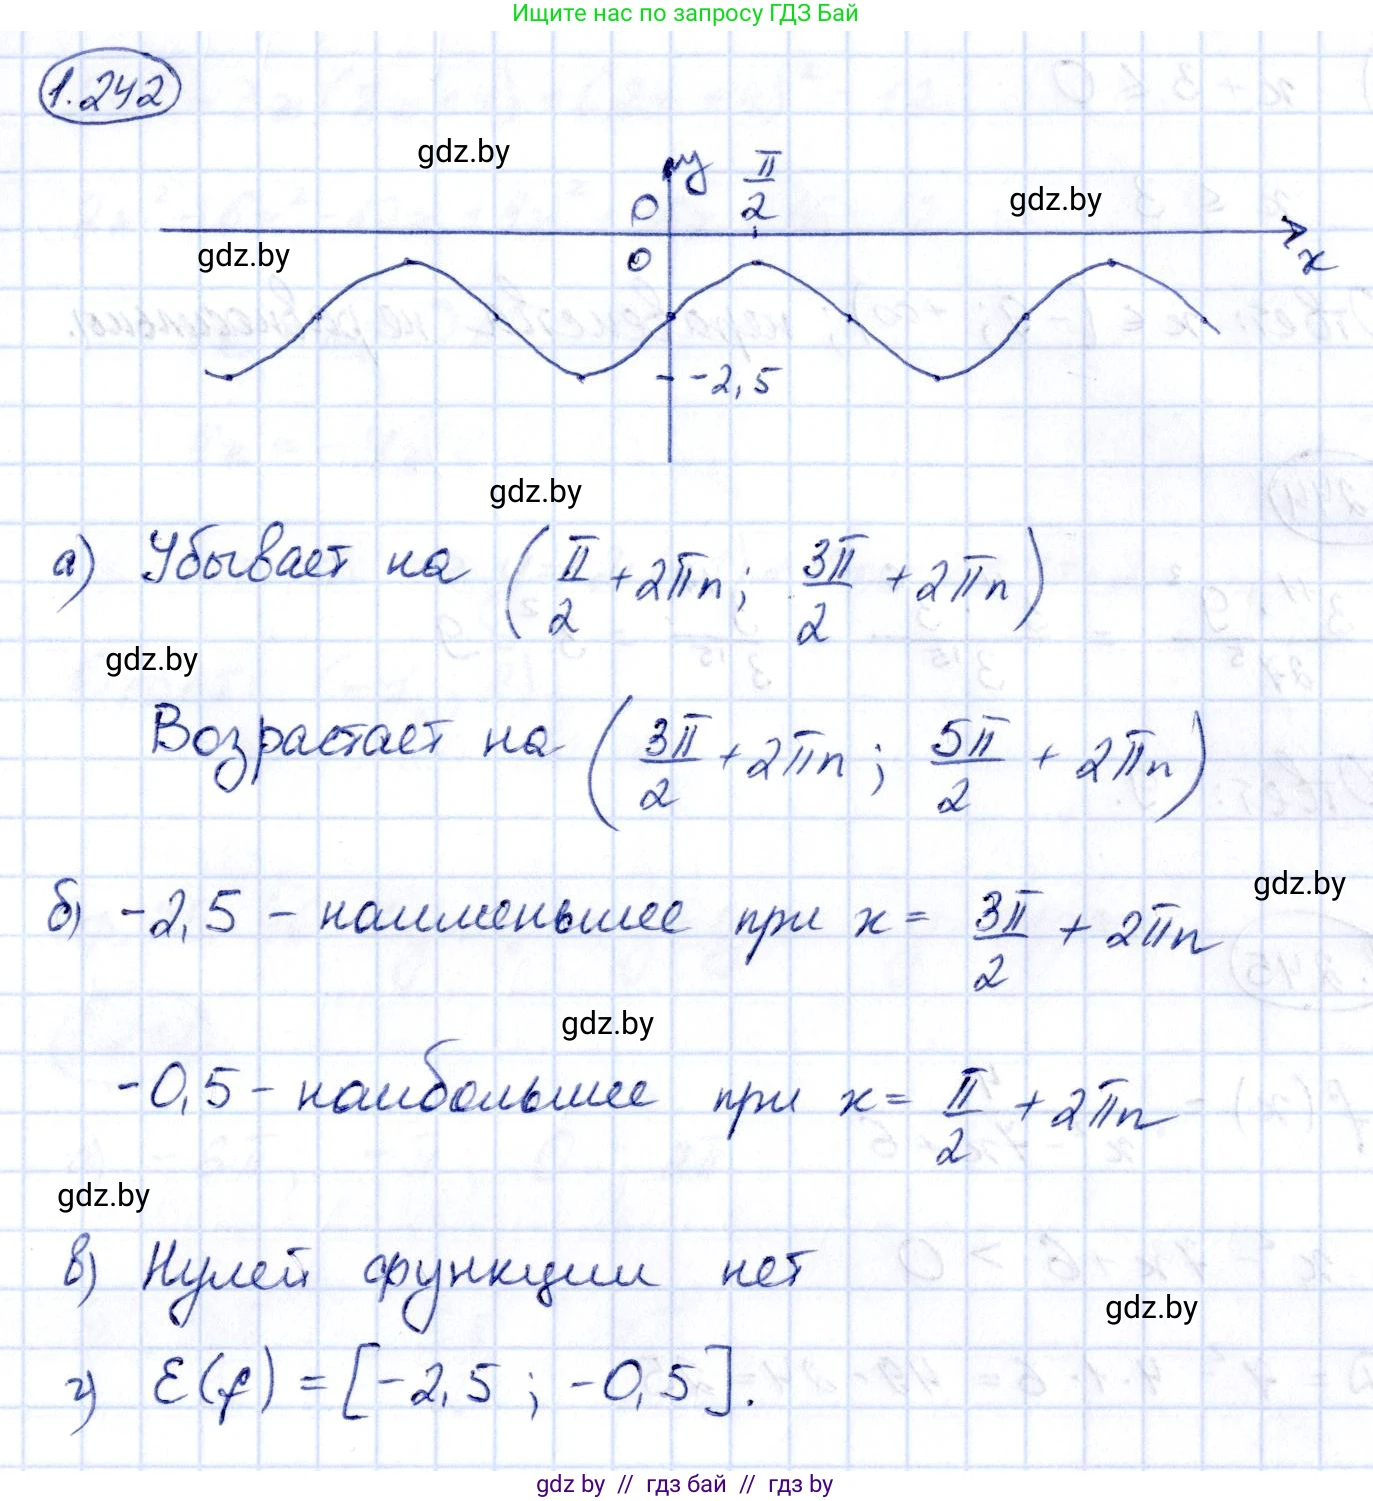 Ищите нас по запросу ГДЗ Бай
1.242
gdz.by
y
π/2
0
gdz.by
gdz.by
0
x
-2,5
gdz.by
а) Убывает на (π/2 + 2πn; 3π/2 + 2πn)
gdz.by
Возрастает на (3π/2 + 2πn; 5π/2 + 2πn)
gdz.by
б) -2,5 - наименьшее при x = 3π/2 + 2πn
gdz.by
-0,5 - наибольшее при x = π/2 + 2πn
gdz.by
в) Нулей функции нет
gdz.by
г) E(f) = [-2,5 ; -0,5].
gdz by // гдз бай // gdz by